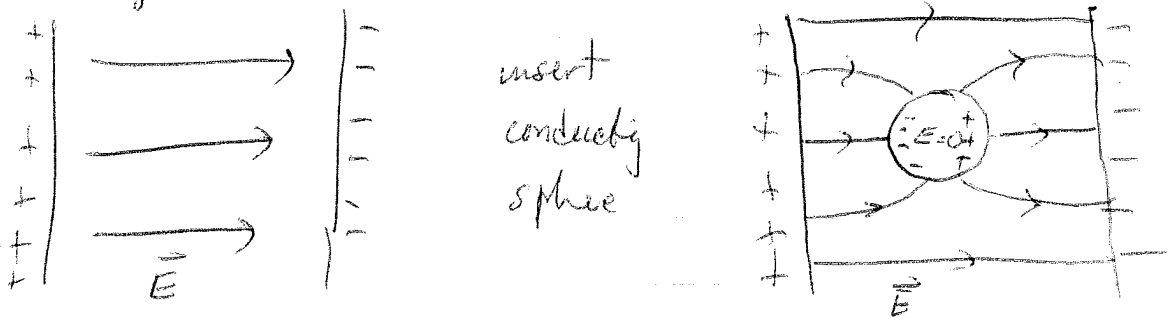 +
+
+
+
+
+
-
-
-
-
-
-
E
insert
conducting
sphee
+
+
+
+
+
+
-
-
-
-
-
-
-
-
-
-
-
E=0
+
+
+
E